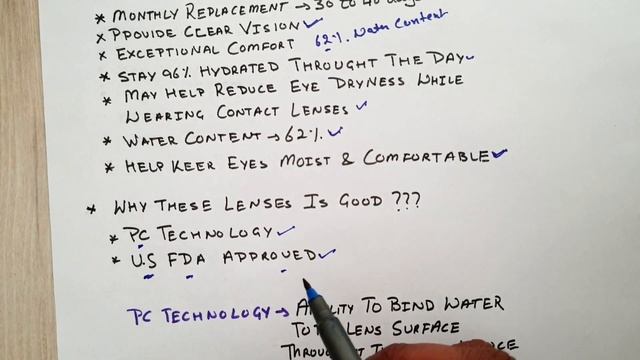 * MONTHLY REPLACEMENT → 30 to 40 days
× PPOVIDE CLEAR VISION ✓
× EXCEPTIONAL COMFORT 62% Water Content
* STAY 96% HYDRATED THROUGHT THE DAY ✓
* MAY HELP REDUCE EYE DRYNESS WHILE
WEARING CONTACT LENSES ✓
* WATER CONTENT → 62% ✓
* HELP KEER EYES MOIST & COMFORTABLE ✓
* WHY THESE LENSES IS GOOD ???
* PC TECHNOLOGY ✓
* U.S FDA APPROVED ✓
PC TECHNOLOGY → ABILITY TO BIND WATER
TO LENS SURFACE
THROUGHT